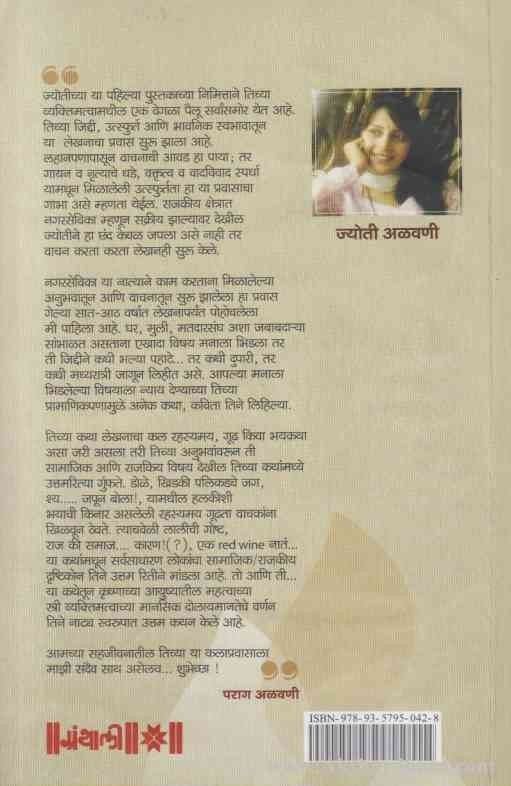 ज्योतीच्या या पहिल्या पुस्तकाच्या निमित्ताने तिच्या
व्यक्तिमत्वामधील एक वेगळा पैलू सर्वांसमोर येत आहे.
तिच्या जिद्दी, उत्स्फुर्त आणि भावनिक स्वभावातून
या लेखनाचा प्रवास सुरू झाला आहे.
लहानपणापासून वाचनाची आवड हा पाया; तर
गायन व नृत्याचे धडे, वक्तृत्व व वादविवाद स्पर्धा
यामधून मिळालेली उत्स्फुर्तता हा या प्रवासाचा
गाभा असे म्हणता येईल. राजकीय क्षेत्रात
नगरसेविका म्हणून सक्रीय झाल्यावर देखील
ज्योतीने हा छंद केवळ जपला असे नाही तर
वाचन करता करता लेखनही सुरू केले.
ज्योती अळवणी
नगरसेविका या नात्याने काम करताना मिळालेल्या
अनुभवातून आणि वाचनातून सुरू झालेला हा प्रवास
गेल्या सात-आठ वर्षात लेखनापर्यंत पोहोचलेला
मी पाहिला आहे. घर, मुली, मतदारसंघ अशा जबाबदाऱ्या
सांभाळत असताना एखादा विषय मनाला भिडला तर
ती जिद्दीने कधी भल्या पहाटे... तर कधी दुपारी, तर
कधी मध्यरात्री जागून लिहीत असे. आपल्या मनाला
भिडलेल्या विषयाला न्याय देण्याच्या तिच्या
प्रामाणिकपणामुळे अनेक कथा, कविता तिने लिहिल्या.
तिच्या कथा लेखनाचा कल रहस्यमय, गूढ किंवा भयकथा
असा जरी असला तरी तिच्या अनुभवांवरून ती
सामाजिक आणि राजकिय विषय देखील तिच्या कथांमध्ये
उत्तमरित्या गुंफते. डोळे, खिडकी पलिकडचे जग,
श्य..... जपून बोला!, यामधील हलकीशी
भयाची किनार असलेली रहस्यमय गूढता वाचकांना
खिळवून ठेवते. त्याचवेळी लालीची गोष्ट,
राज की समाज.... कारण!(?), एक red wine नातं...
या कथांमधून सर्वसाधारण लोकांचा सामाजिक/राजकीय
दृष्टिकोन तिने उत्तम रितीने मांडला आहे. तो आणि ती...
या कथेतून कृष्णाच्या आयुष्यातील महत्वाच्या
स्त्री व्यक्तिमत्वाच्या मानसिक दोलायमानतेचे वर्णन
तिने नाट्य स्वरुपात उत्तम कथन केले आहे.
आमच्या सहजीवनातील तिच्या या कलाप्रवासाला
माझी सदैव साथ असेलच... शुभेच्छा !
पराग अळवणी
ग्रंथाली
ISBN-978-93-5795-042-8